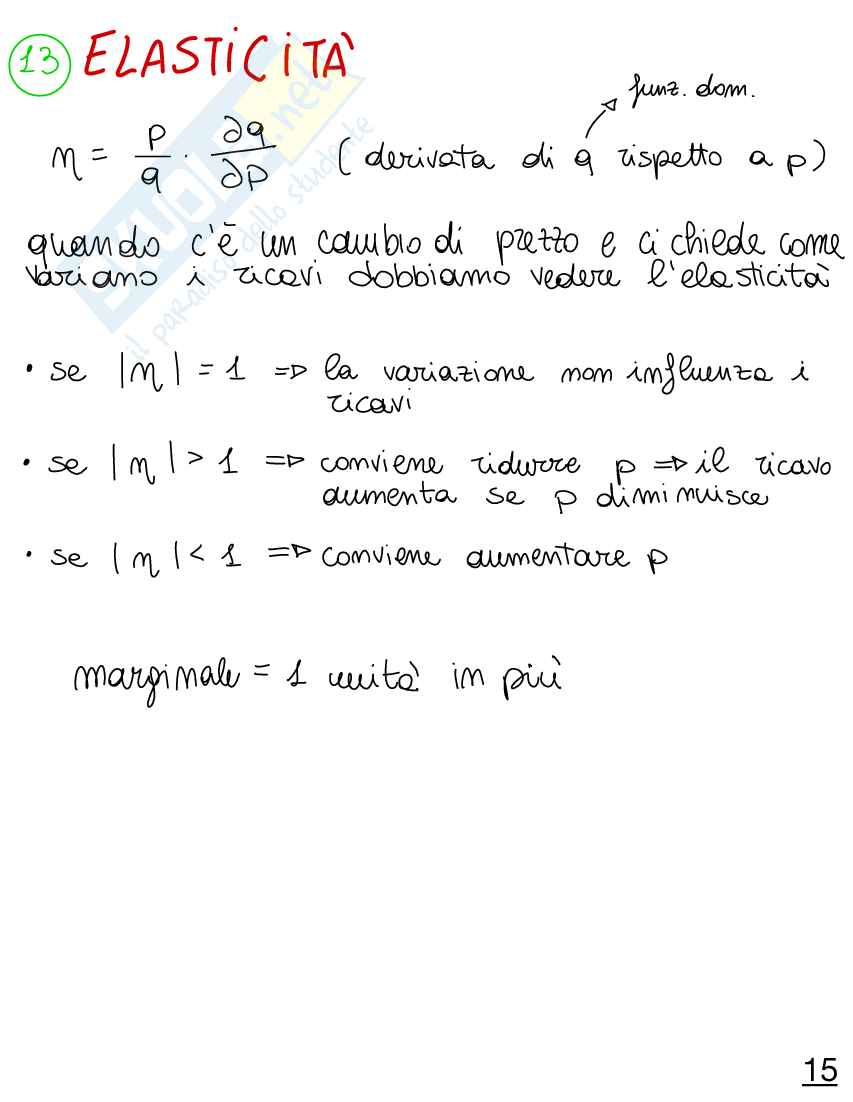 13 ELASTICITÀ
funz. dom.
η = p/q · ∂q/∂p (derivata di q rispetto a p)
quando c'è un cambio di prezzo e ci chiede come
variano i ricavi dobbiamo vedere l'elasticità
• se |η| = 1 => la variazione non influenza i
ricavi
• se |η| > 1 => conviene ridurre p => il ricavo
aumenta se p diminuisce
• se |η| < 1 => conviene aumentare p
marginale = 1 unità in più
15
SKUOLA.net
il paradiso dello studente